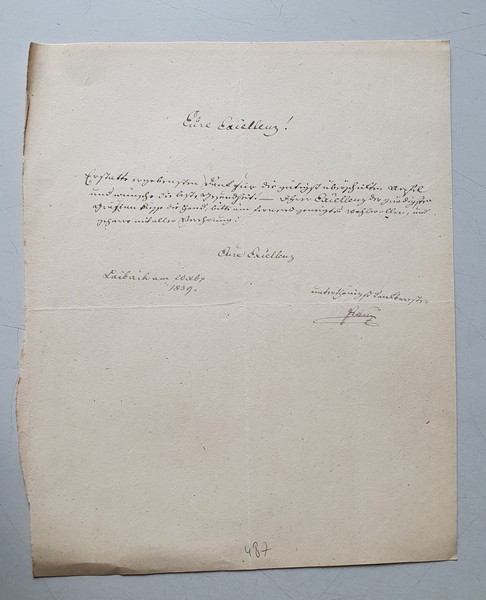 Eure Excellenz!
Erstatte ergebensten Dank für die gütigst überschickten Äpfel
und wünsche die beste Gesundheit. — Ihrer Excellenz der gnädigsten
Gräfin küsse die Hand, bitte um ferneres geneigtes Wohlwollen, und
geharre mit aller Verehrung.
Eure Excellenz
Laibach am
1839.
unterthänigst
487